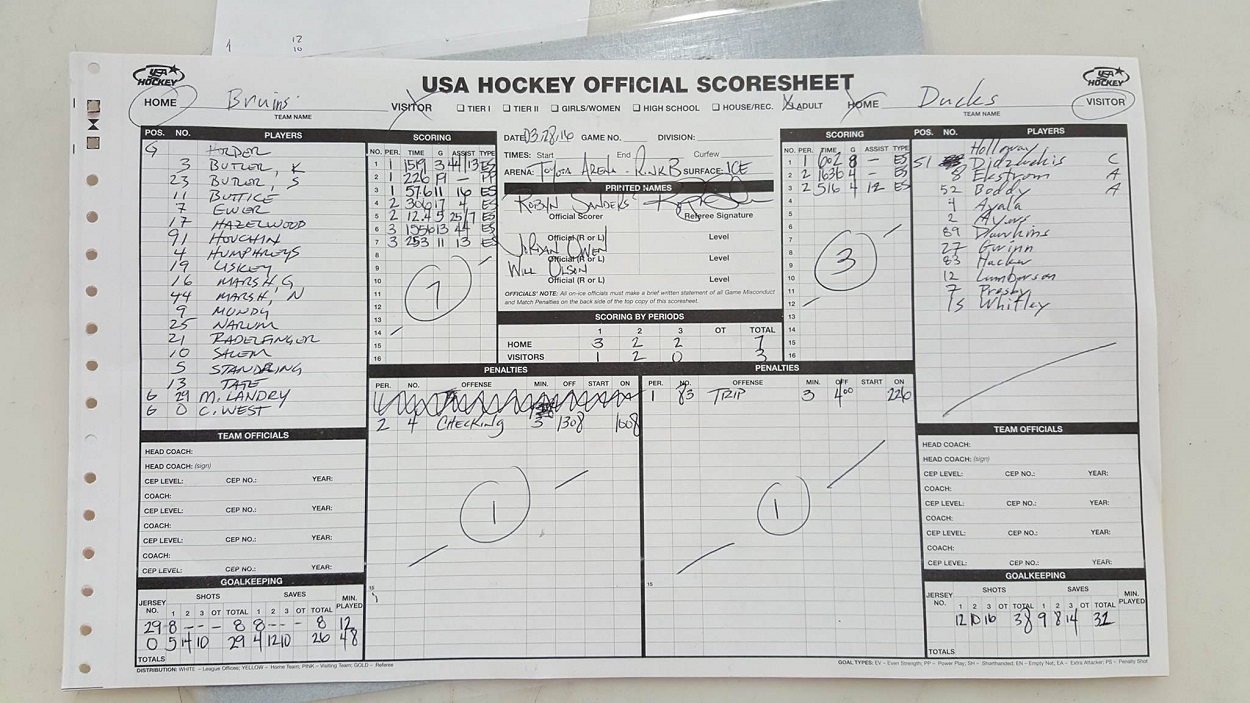 12
10
USA HOCKEY OFFICIAL SCORESHEET
USA HOCKEY
USA HOCKEY
HOME Bruins VISITOR
TEAM NAME
☐ TIER I ☐ TIER II ☐ GIRLS/WOMEN ☐ HIGH SCHOOL ☐ HOUSE/REC. ADULT
HOME Ducks VISITOR
TEAM NAME
POS. NO. PLAYERS
G
3 BUTLER, K
23 BUTLER, S
11 BUTTICE
7 EWER
17 HAZELWOOD
91 HOUCHIN
4 HUMPHREYS
19 LISKEY
16 MARSH, G
44 MARSH, N
9 MUNDY
25 NARUM
21 RADELFINGER
10 SALEM
5 STANDRING
13 TATE
G 29 M. LANDRY
G 0 C. WEST
SCORING
NO. PER. TIME G ASSIST TYPE
1 1 1519 3 44/13 ES
2 1 226 19 – PP
3 1 57.6 11 16 ES
4 2 306 17 4 ES
5 2 12.4 5 25/7 ES
6 3 1556 13 44 ES
7 3 253 11 13 ES
8
9
10
11
12
13
14
15
16
7
DATE 03.28.16 GAME NO. DIVISION:
TIMES: Start End Curfew
ARENA: Toyota Arena - Rink B SURFACE: ICE
PRINTED NAMES
Robyn Sanders
Official Scorer Referee Signature
Official (R or L) Level
Jordan Owen
Official (R or L) Level
Will Olson
Official (R or L) Level
OFFICIALS' NOTE: All on-ice officials must make a brief written statement of all Game Misconduct
and Match Penalties on the back side of the top copy of this scoresheet.
SCORING BY PERIODS
1 2 3 OT TOTAL
HOME 3 2 2 7
VISITORS 1 2 0 3
SCORING
NO. PER. TIME G ASSIST TYPE
1 1 602 8 – ES
2 2 1636 4 – ES
3 2 516 4 12 ES
4
5
6
7
8
9
10
11
12
13
14
15
16
3
POS. NO. PLAYERS
Holloway
51 Didzbalis C
8 Ekstrom A
52 Boddy A
4 Ayala
2 Ayers
89 Dawkins
27 Gwinn
83 Hacker
12 Lamberson
7 Presby
15 Whitley
PENALTIES
PER. NO. OFFENSE MIN. OFF START ON
2 4 CHECKING 3 1308 1008
1
PENALTIES
PER. NO. OFFENSE MIN. OFF START ON
1 83 TRIP 3 400 226
1
15
15
TEAM OFFICIALS
HEAD COACH:
HEAD COACH: (sign)
CEP LEVEL: CEP NO.: YEAR:
COACH:
CEP LEVEL: CEP NO.: YEAR:
COACH:
CEP LEVEL: CEP NO.: YEAR:
COACH:
CEP LEVEL: CEP NO.: YEAR:
TEAM OFFICIALS
HEAD COACH:
HEAD COACH: (sign)
CEP LEVEL: CEP NO.: YEAR:
COACH:
CEP LEVEL: CEP NO.: YEAR:
COACH:
CEP LEVEL: CEP NO.: YEAR:
COACH:
CEP LEVEL: CEP NO.: YEAR:
GOALKEEPING
JERSEY NO. SHOTS SAVES MIN. PLAYED
1 2 3 OT TOTAL 1 2 3 OT TOTAL
29 8 – – – 8 8 – – – 8 12
0 5 14 10 29 4 12 10 26 48
TOTALS
GOALKEEPING
JERSEY NO. SHOTS SAVES MIN. PLAYED
1 2 3 OT TOTAL 1 2 3 OT TOTAL
12 10 16 38 9 8 14 31
TOTALS
DISTRIBUTION: WHITE – League Offices; YELLOW – Home Team; PINK – Visiting Team; GOLD – Referee
GOAL TYPES: EV – Even Strength; PP – Power Play; SH – Shorthanded; EN – Empty Net; EA – Extra Attacker; PS – Penalty Shot